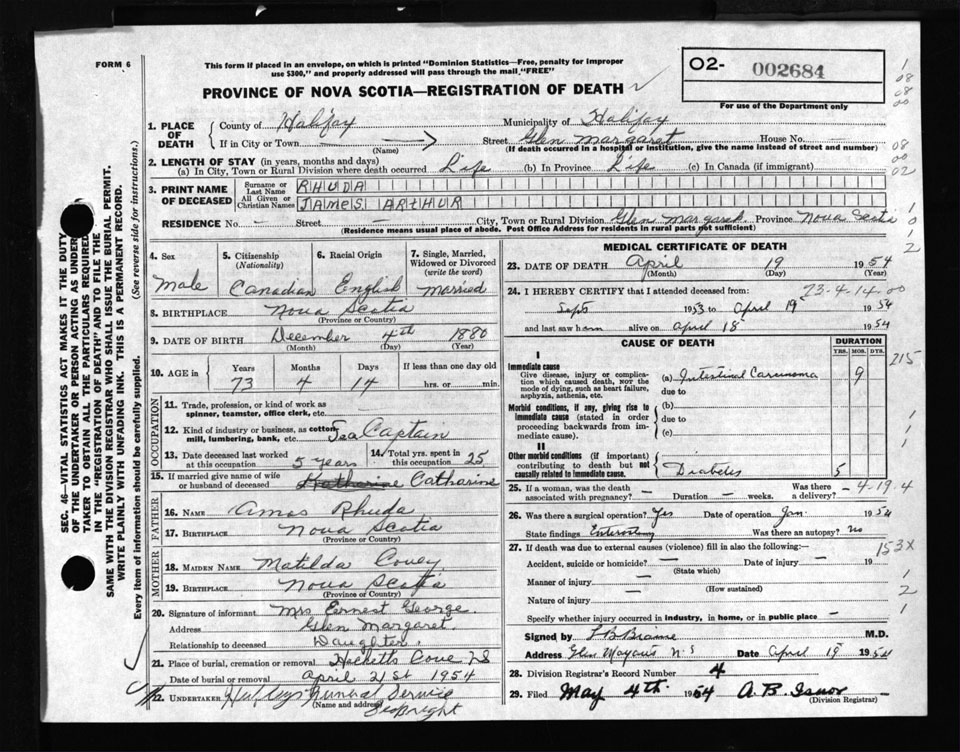 FORM 6
This form if placed in an envelope, on which is printed "Dominion Statistics—Free, penalty for improper
use $300," and properly addressed will pass through the mail "FREE"
PROVINCE OF NOVA SCOTIA—REGISTRATION OF DEATH
O2- 002684
For use of the Department only
1. PLACE OF DEATH
County of Halifax Municipality of Halifax
If in City or Town (Name) Street Glen Margaret House No.
(If death occurred in a hospital or institution, give the name instead of street and number)
2. LENGTH OF STAY (in years, months and days)
(a) In City, Town or Rural Division where death occurred Life (b) In Province Life (c) In Canada (if immigrant)
3. PRINT NAME OF DECEASED
Surname or Last Name RHUDA
All Given or Christian Names JAMES ARTHUR
RESIDENCE No. - Street - City, Town or Rural Division Glen Margaret Province Nova Scotia
(Residence means usual place of abode. Post Office Address for residents in rural parts not sufficient)
4. Sex Male
5. Citizenship (Nationality) Canadian
6. Racial Origin English
7. Single, Married, Widowed or Divorced (write the word) Married
8. BIRTHPLACE Nova Scotia
(Province or Country)
9. DATE OF BIRTH December 4th 1880
(Month) (Day) (Year)
10. AGE in Years 73 Months 4 Days 14 If less than one day old hrs. or min.
OCCUPATION
11. Trade, profession or kind of work as spinner, teamster, office clerk, etc.
12. Kind of industry or business, as cotton mill, lumbering, bank, etc. Sea Captain
13. Date deceased last worked at this occupation 5 years
14. Total yrs. spent in this occupation 25
15. If married give name of wife or husband of deceased Katharine Catharine
FATHER
16. NAME Amos Rhuda
17. BIRTHPLACE Nova Scotia
(Province or Country)
MOTHER
18. MAIDEN NAME Matilda Covey
19. BIRTHPLACE Nova Scotia
(Province or Country)
20. Signature of informant Mrs Ernest George
Address Glen Margaret
Relationship to deceased Daughter
21. Place of burial, cremation or removal Hacketts Cove NS
Date of burial or removal April 21st 1954
22. UNDERTAKER Funeral Service
(Name and address) Seabright
MEDICAL CERTIFICATE OF DEATH
23. DATE OF DEATH April 19 1954
(Month) (Day) (Year)
24. I HEREBY CERTIFY that I attended deceased from 73-4-14-00
Sept 1953 to April 19 1954
and last saw him alive on April 18 1954
CAUSE OF DEATH
DURATION
YRS. MOS. DYS.
I
Immediate cause
Give disease, injury or complication which caused death, not the mode of dying, such as heart failure, asphyxia, asthenia, etc.
(a) Intestinal Carcinoma 9
due to
Morbid conditions, if any, giving rise to immediate cause (stated in order proceeding backwards from immediate cause).
(b)
due to
(c)
II
Other morbid conditions (if important) contributing to death but not causally related to immediate cause.
Diabetes 5
25. If a woman, was the death associated with pregnancy? - Duration - weeks. Was there a delivery? -
4-19-4
26. Was there surgical operation? Yes Date of operation Jan. 1954
State findings Was there an autopsy? No
27. If death was due to external causes (violence) fill in also the following:—
Accident, suicide or homicide? - Date of injury - 19
(State which)
Manner of injury -
(How sustained)
Nature of injury -
Specify whether injury occurred in industry, in home, or in public place -
Signed by M.D.
Address N S Date April 19 1954
28. Division Registrar's Record Number 4
29. Filed May 4th 1954 A. B. Isnor
(Division Registrar)
215
153X
SEC. 46—VITAL STATISTICS ACT MAKES IT THE DUTY
OF THE UNDERTAKER OR PERSON ACTING AS UNDERTAKER TO OBTAIN ALL THE PARTICULARS REQUIRED
IN THE "REGISTRATION OF DEATH" AND TO FILE THE
SAME WITH THE DIVISION REGISTRAR WHO SHALL ISSUE THE BURIAL PERMIT.
WRITE PLAINLY WITH UNFADING INK. THIS IS A PERMANENT RECORD.
Every item of information should be carefully supplied. (See reverse side for instructions.)